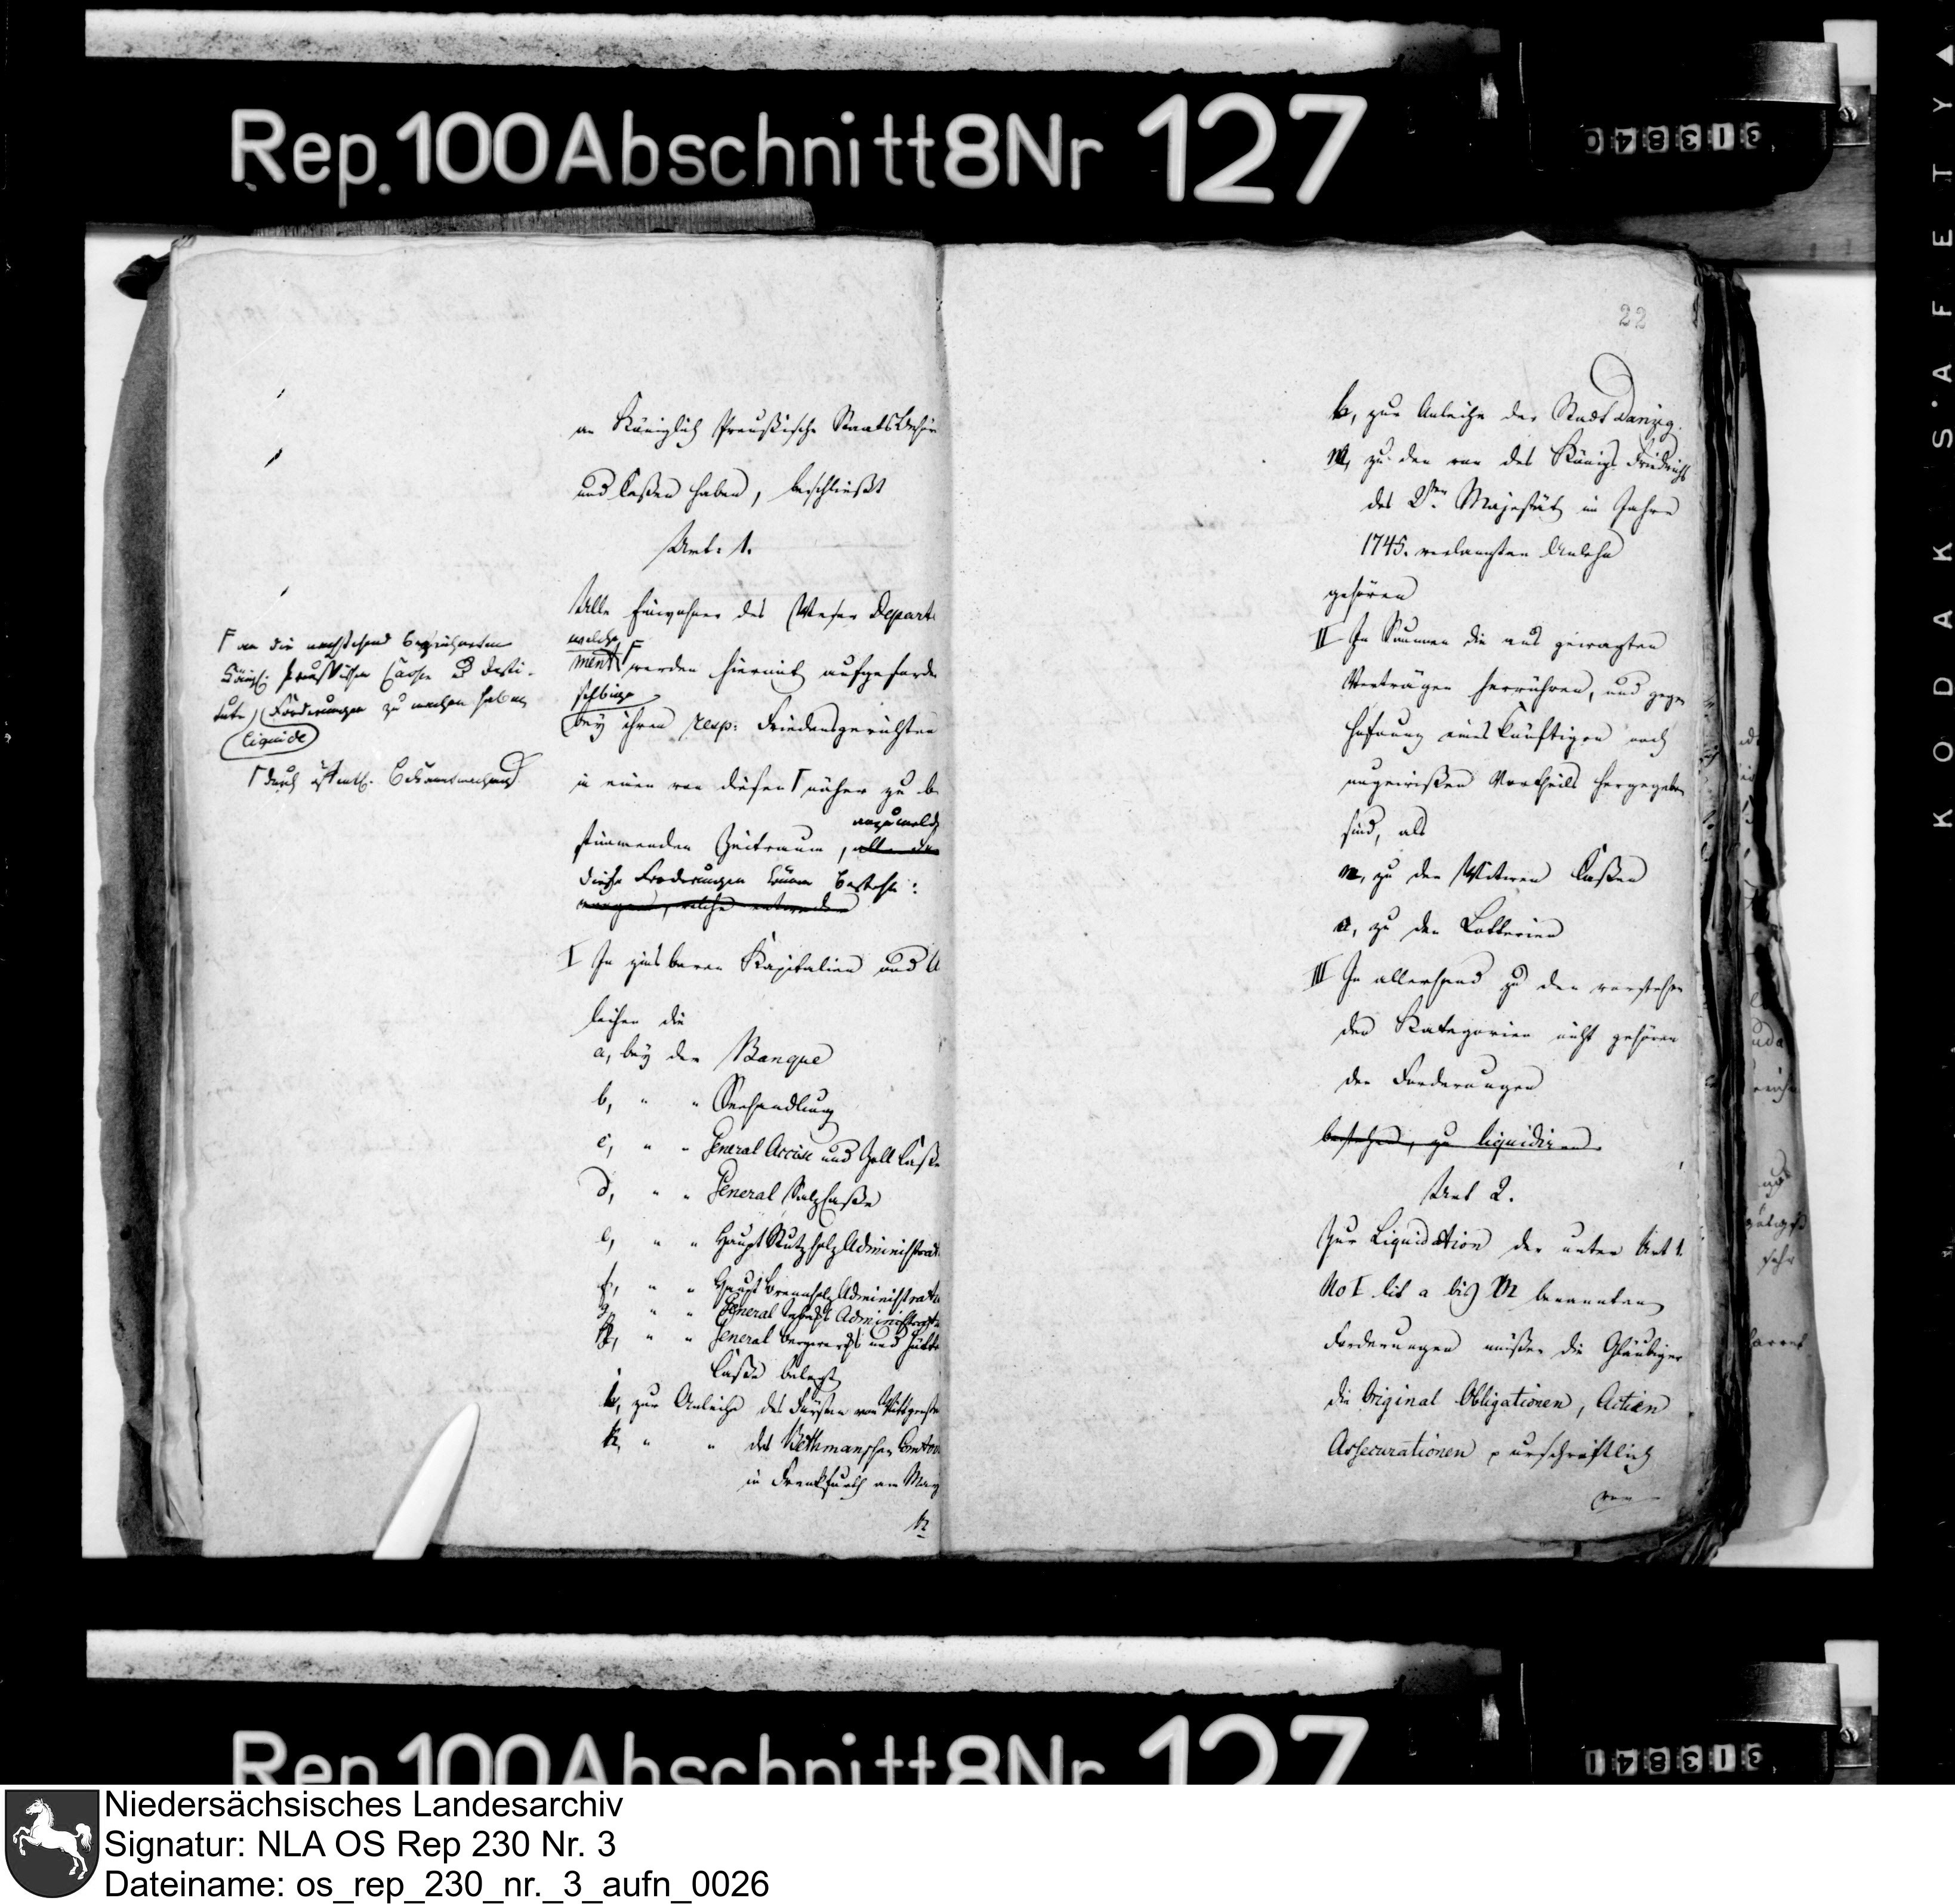 Rep. 100 Abschnitt 8 Nr 127
313840
22
an Königlich Preußische Staatsbehör
und Caßen haben, beschließt
Art: 1.
Alle Einwohner des Weser Depart:
welche
ment werden hiermit aufgeforde
selbige
bey ihren resp: Friedensgerichten
in einen von diesen näher zu be
anzumelde
stimmenden Zeitraum,
diese Forderungen können bestehn:
welche entweder
an die nachstehend bezeichneten
Königl. Preussischen Cassen u Insti-
tute, Forderungen zu machen haben
liquide
durch öffentl. Bekanntmachung
I In zinsbaren Kapitalien und A
leihen die
a, bey der Banque
b, " " Seehandlung
c, " " General Accise und Zoll Caße
d, " " General Salz Caße
e, " " Haupt Nutzholz Administrat
f, " " Haupt Brennholz Administrati
g, " " General Tabacks Administrati
h, " " General Bergwercks und Hütte
Caße belegt
i, zur Anleihe des Fürsten von Wittgenste
k, " " des Bethmanschen Comtoi
in Frankfurth am May
l, zur Anleihe der Stadt Danzig.
m, zu den von des Königs Friedrichs
des 2ten Majestät im Jahre
1745. verlangten Anlehn
gehören
II In Summen die aus gewagten
Verträgen herrühren, und gegen
Hofnung eines künftigen noch
ungewißen Vortheils hergegeben
sind, als
zu den Witwen Caßen
zu den Lotterien
III In allerhand zu den vorstehen
den Kategorien nicht gehören
den Forderungen
bestehen, zu liquidiren.
Art 2.
Zur Liquidation der unter Art 1.
No I lit a bis m benannten
Forderungen müßen die Gläubiger
die Original Obligationen, Actien
Assecurationen urschriftlich
Rep. 100 Abschnitt 8 Nr 127
313841
KODAK·SAFETY▲
Niedersächsisches Landesarchiv
Signatur: NLA OS Rep 230 Nr. 3
Dateiname: os_rep_230_nr._3_aufn_0026